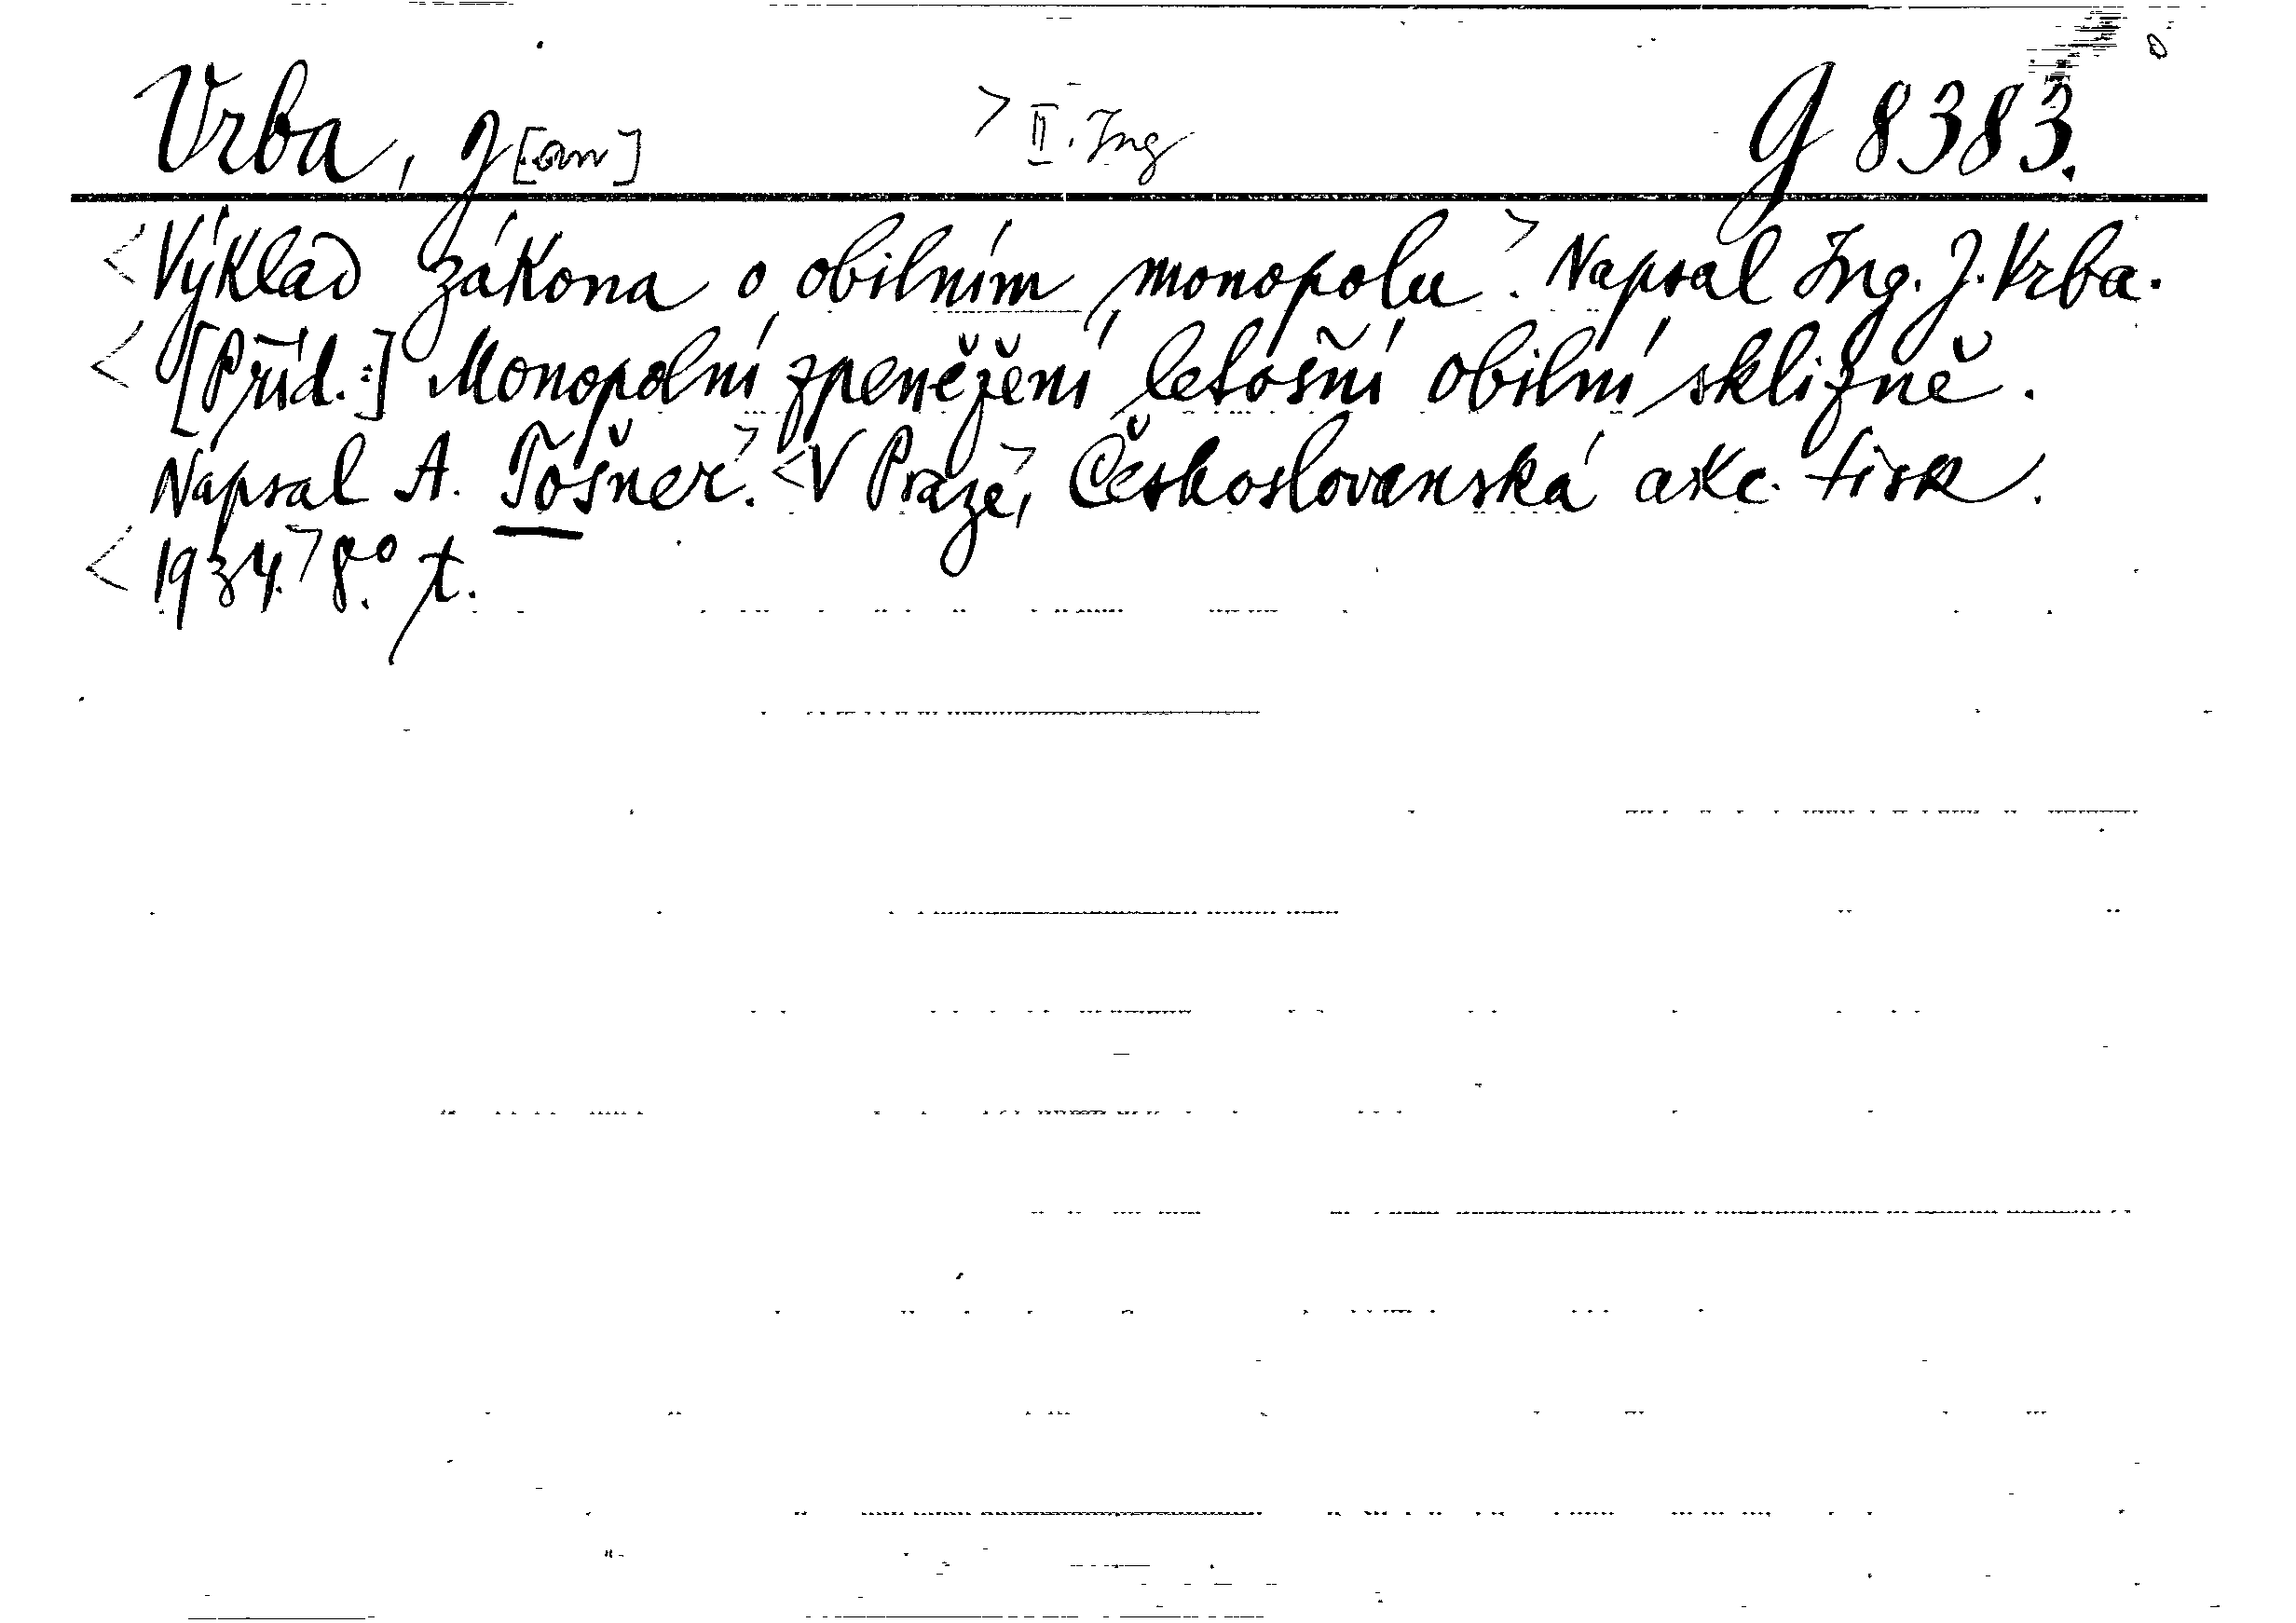 Vrba, J[an] > II. Ing G 8383.
<Výklad zákona o obilním monopolu>. Napsal Ing. J. Vrba.
<[Příd.:] Monopolní zpeněžení letošní obilní sklizně.
Napsal A. Tošner>. <V Praze>, Československá akc. tisk.
<1934.> 8°. t.